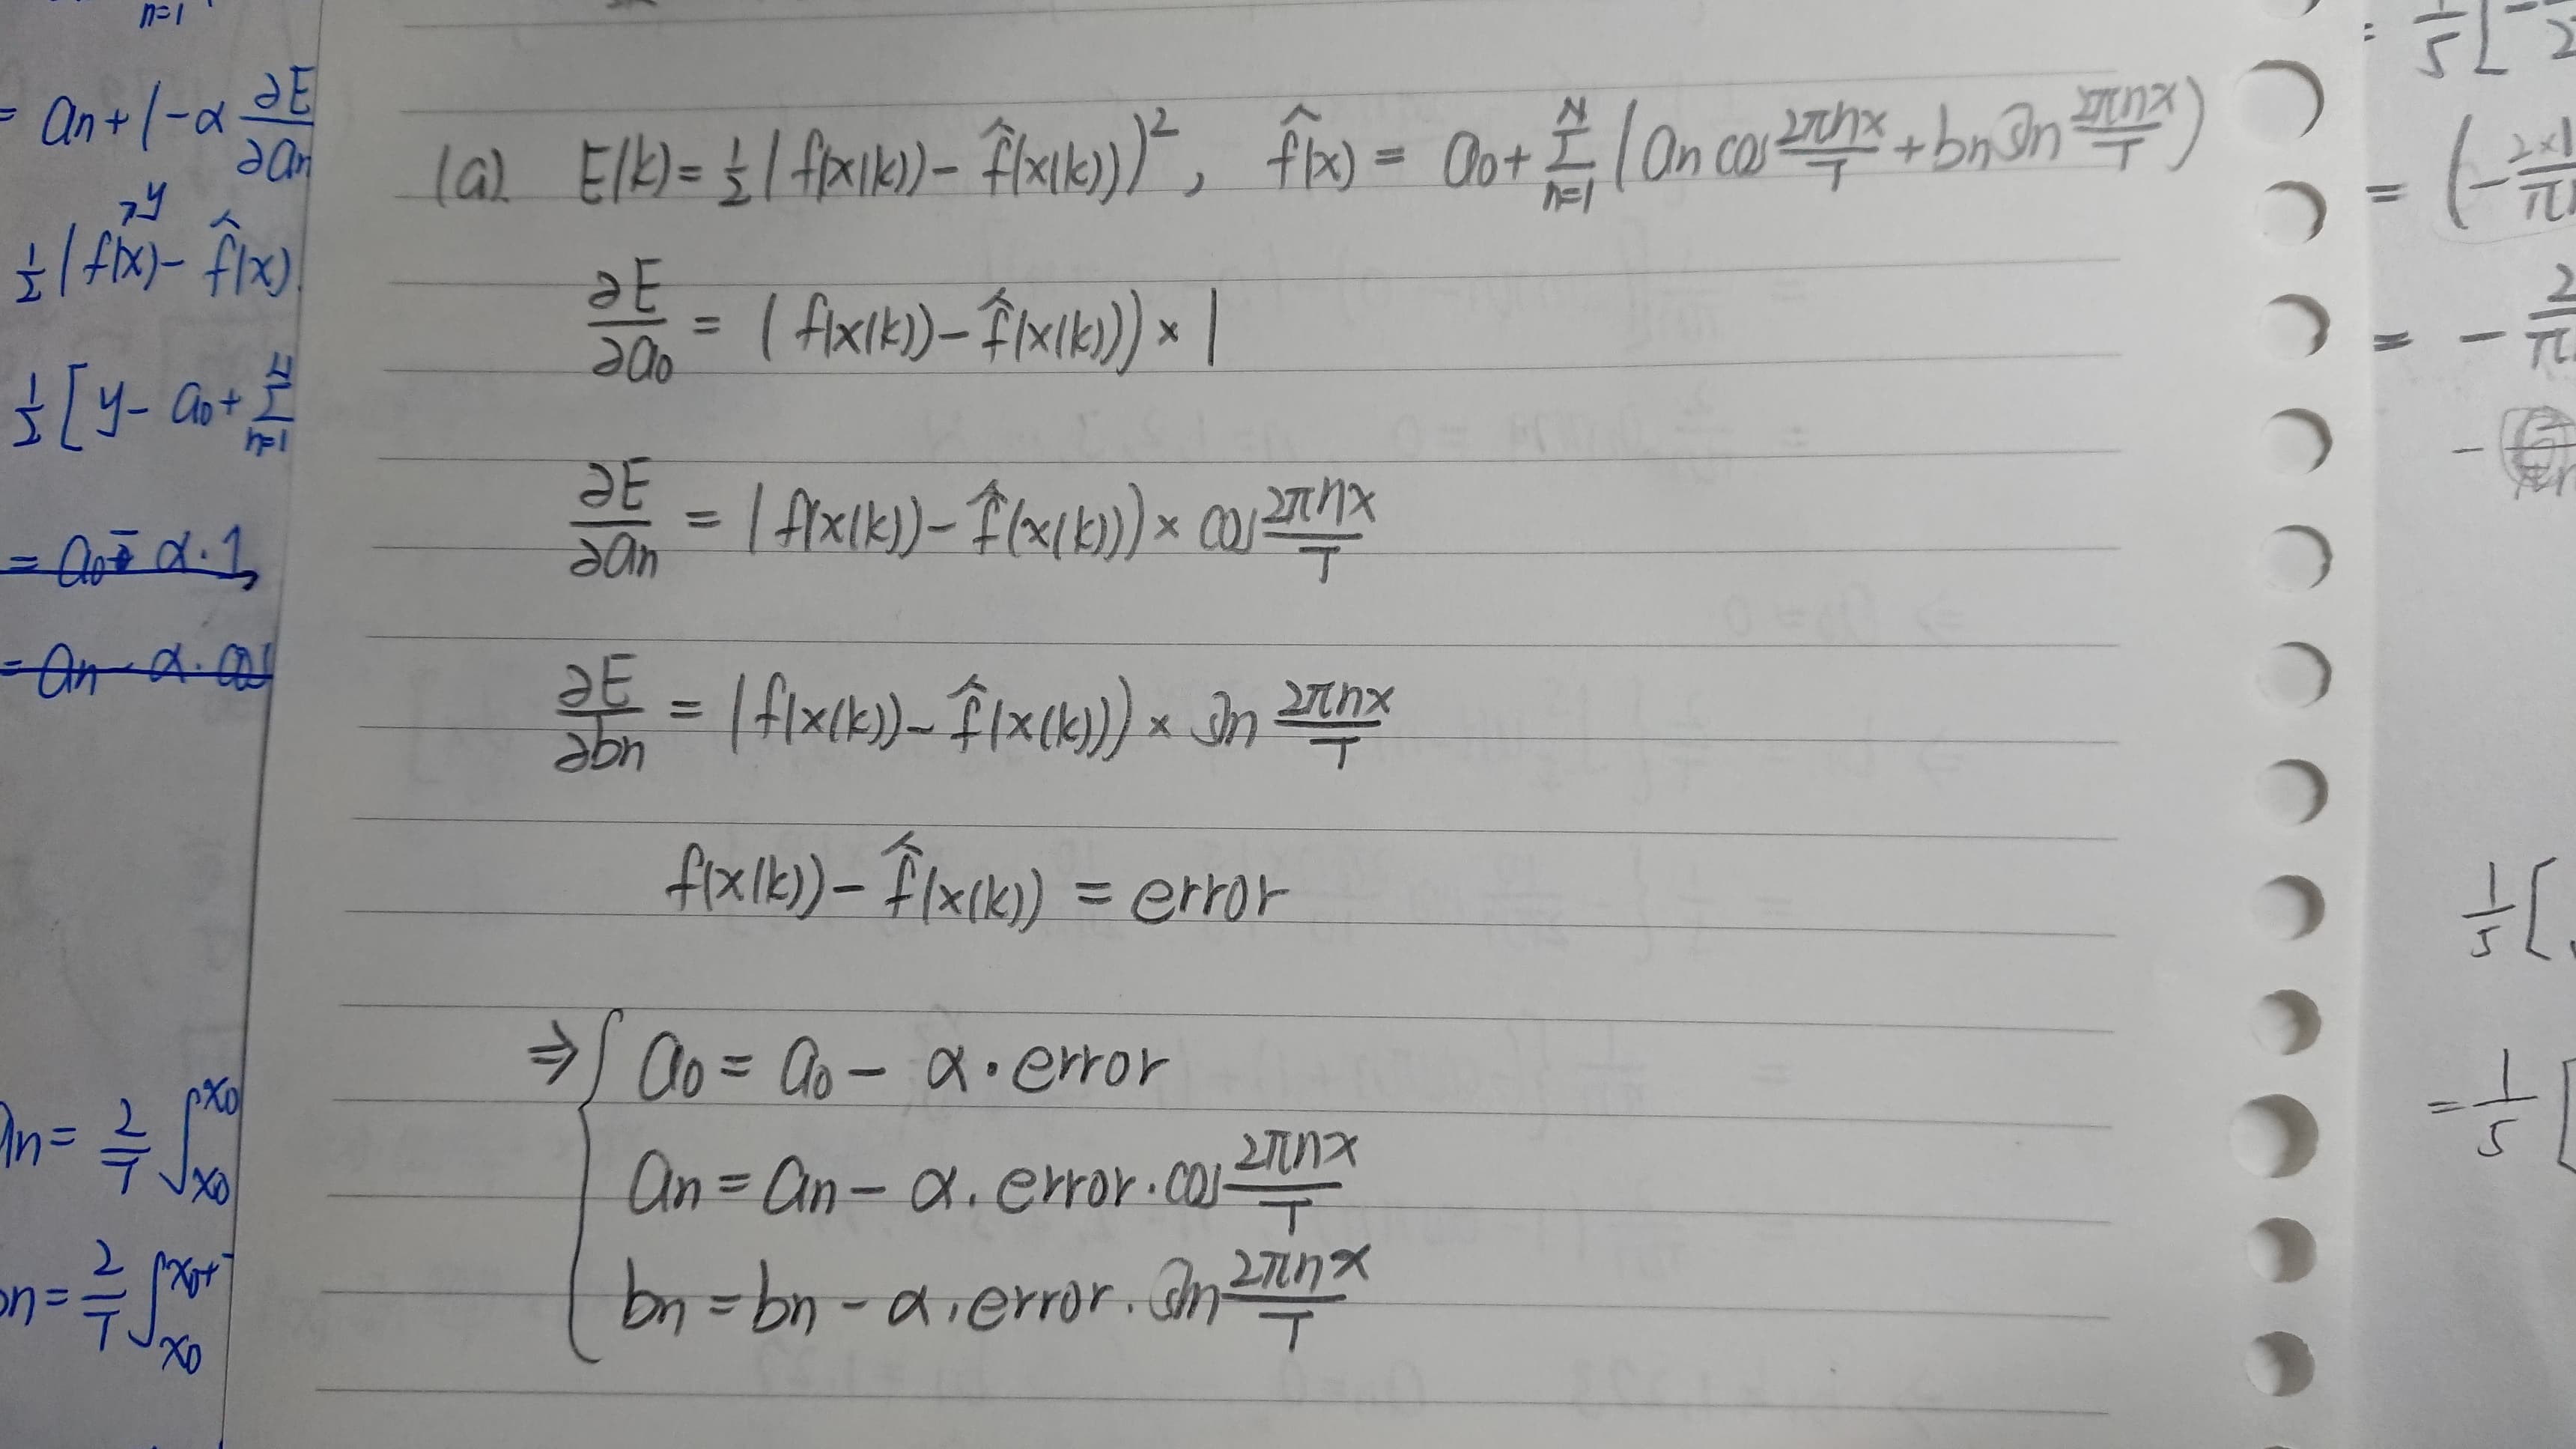 n=1
= an + (-α ∂E/∂an
→y
1/2 (f(x) - f̂(x)
1/2 [y - a0 + Σ_{n=1}^{N}
= a0 - α·1
= an - α·cos
an = 2/T ∫_{x0}^{x0
bn = 2/T ∫_{x0}^{x0+
(a). E(k) = 1/2 (f(x(k)) - f̂(x(k)))², f̂(x) = a0 + Σ_{n=1}^{N} (an cos 2πnx/T + bn sin 2πnx/T)
∂E/∂a0 = (f(x(k)) - f̂(x(k))) × 1
∂E/∂an = (f(x(k)) - f̂(x(k))) × cos 2πnx/T
∂E/∂bn = (f(x(k)) - f̂(x(k))) × sin 2πnx/T
f(x(k)) - f̂(x(k)) = error
⇒ { a0 = a0 - α · error
an = an - α · error · cos 2πnx/T
bn = bn - α · error · sin 2πnx/T
= 1/5 [-
= (- 2×1/π
= - 2/π
1/5 [
= 1/5 [